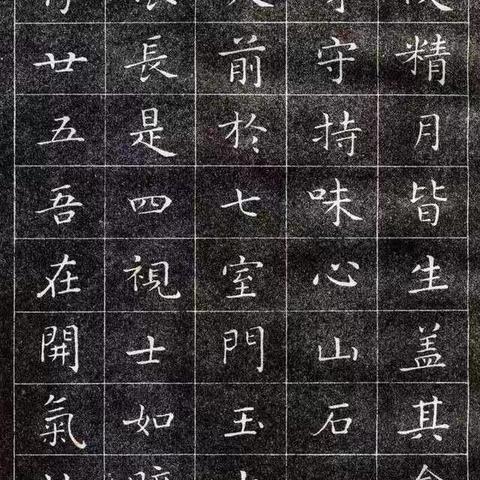 精月皆生盖其
守持味心山石
前於七室門玉
長是四視士如
廿五吾在開氣